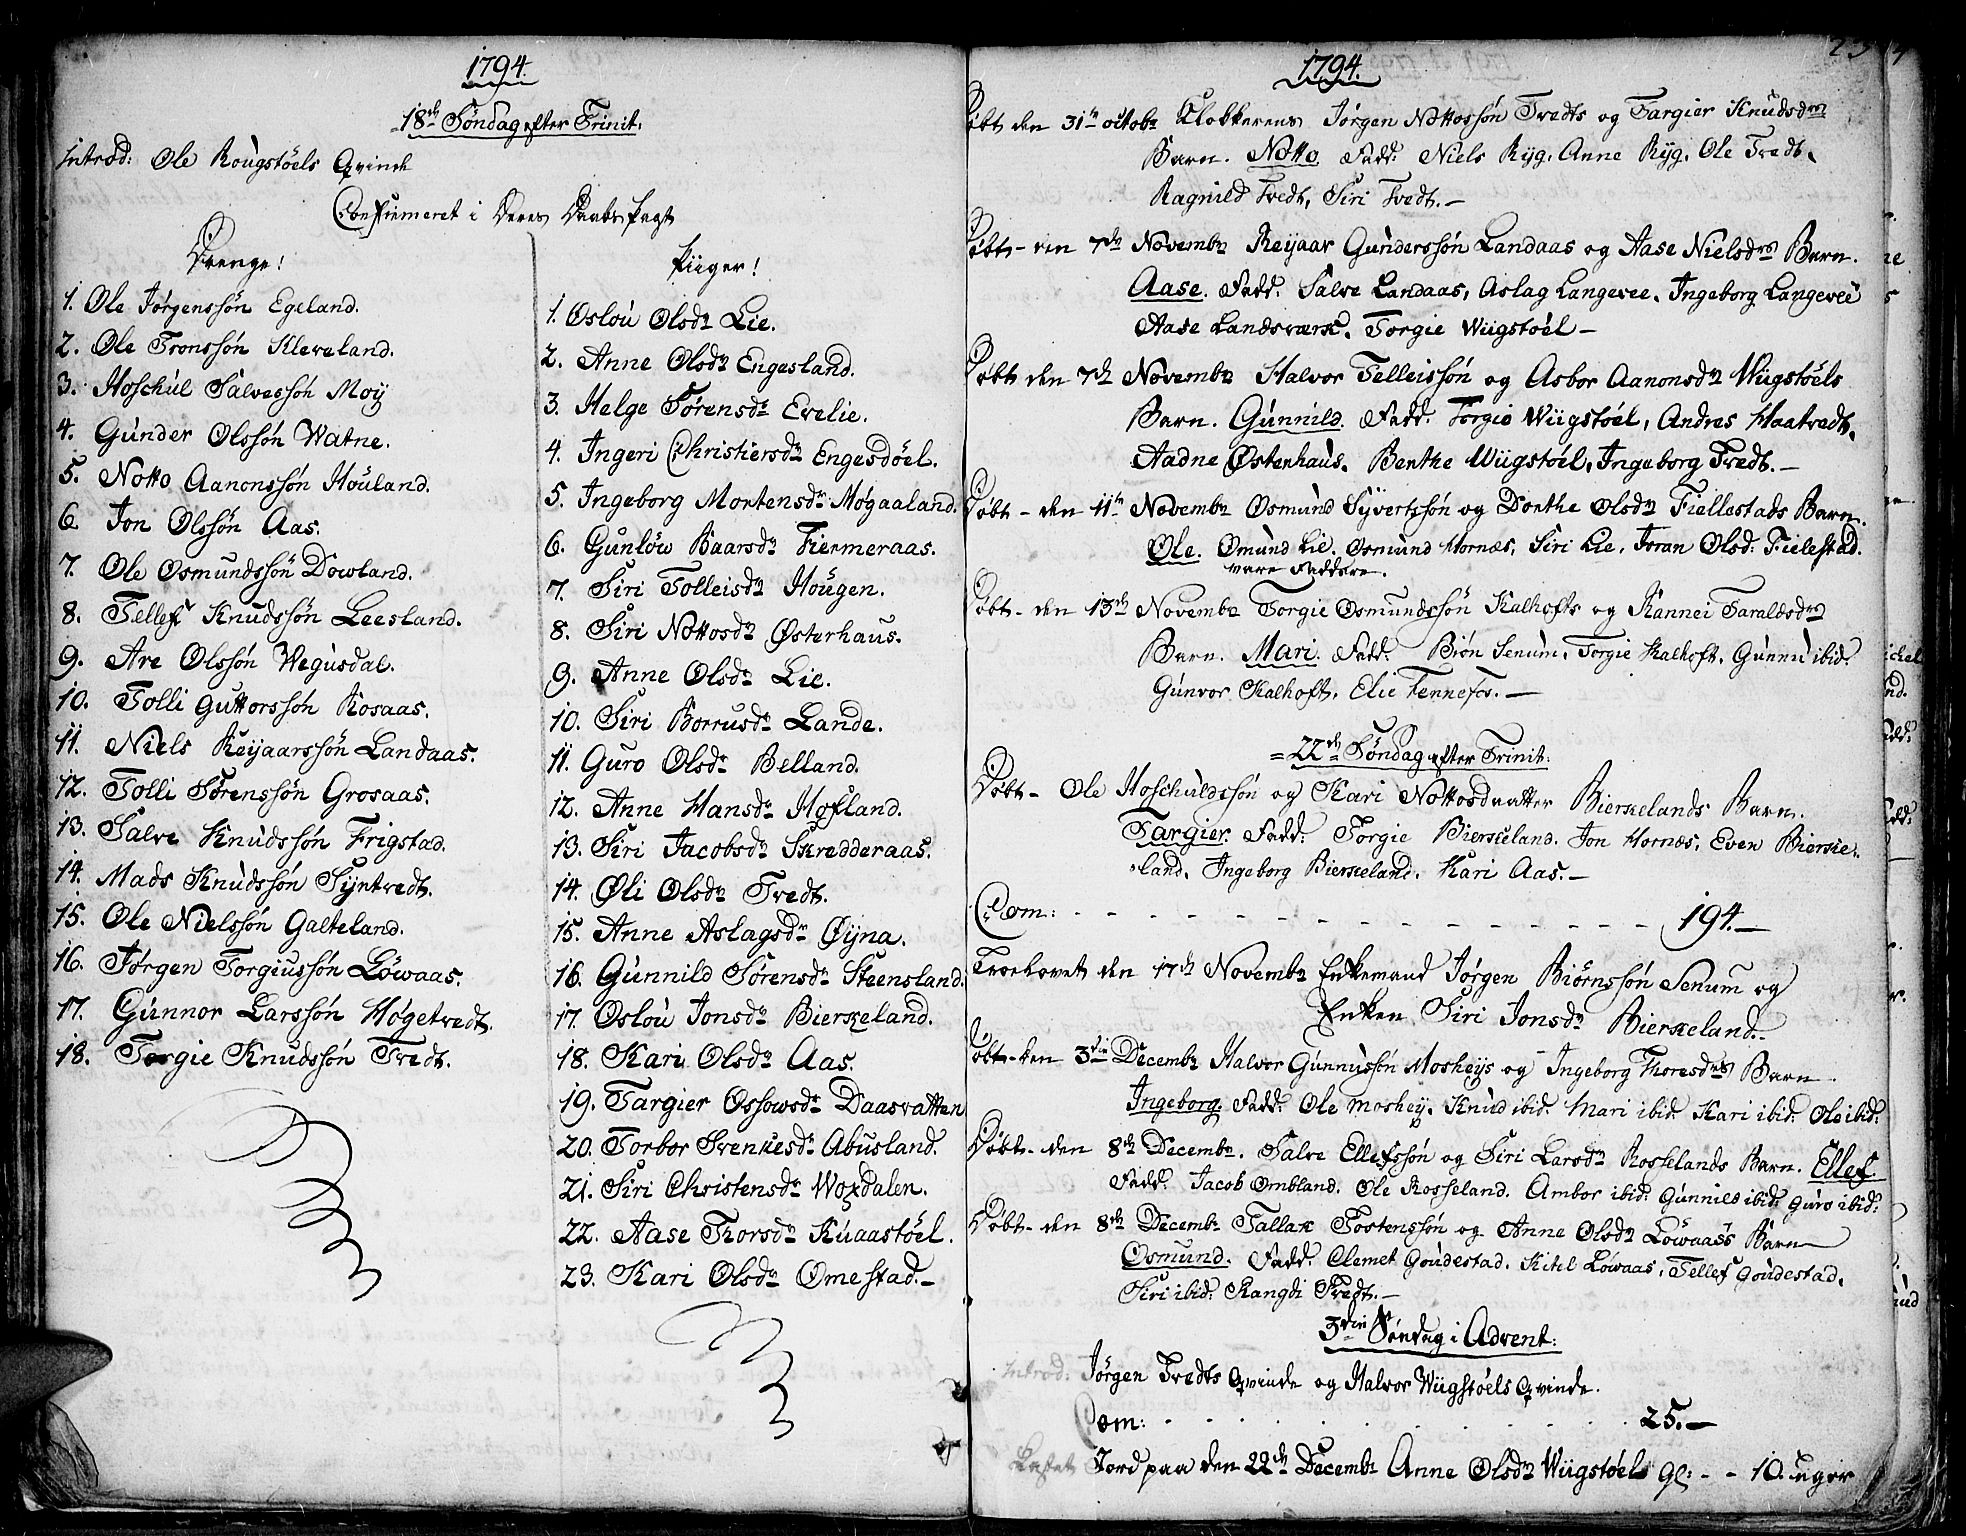 1794.
18de Søndag efter Trinit:
Introd: Ole Rougstøels Qvinde
Confirmeret i Deres Daabs Pagt
Drenge!
1. Ole Jørgenssøn Egeland.
2. Ole Tronssøn Kleveland.
3. Hoschul Salvessøn Moy
4. Gunder Olssøn Watne.
5. Notto Aanonssøn Houland.
6. Jon Olssøn Aas.
7. Ole Osmundssøn Dowland.
8. Tellef Knudssøn Leesland.
9. Are Olssøn Wegusdal.
10. Tolli Guttorssøn Rosaas.
11. Niels Reyaarssøn Landaas.
12. Tolli Sørenssøn Grosaas.
13. Salve Knudssøn Frigstad.
14. Mads Knudssøn Syntvedt.
15. Ole Nielssøn Galteland.
16. Jørgen Torgiussøn Løwaas.
17. Gunnor Larssøn Høgetvedt.
18. Torgie Knudssøn Tvedt.
Piiger!
1. Oslou Olsdr Lie.
2. Anne Olsdr Engesland.
3. Helge Sørensdr Evelie.
4. Ingeri Christiersdr Engesdøel.
5. Ingeborg Mortensdr Møgaaland.
6. Gunløw Baarsdr Fiermeraas.
7. Siri Tolleisdr Hougen.
8. Siri Nottosdr Østerhaus.
9. Anne Olsdr Lie.
10. Siri Borrusdr Lande.
11. Guro Olsdr Belland.
12. Anne Hansdr Hofland.
13. Siri Jacobsdr Skredderaas.
14. Øli Olsdr Tvedt.
15. Anne Aslagsdr Øyna.
16. Gunnild Sørensdr Steensland.
17. Oslou Jonsdr Bierkeland.
18. Kari Olsdr Aas.
19. Targier Ossowsdr Daasvatten
20. Torbor Svenkesdr Abusland.
21. Siri Christensdr Woxdalen.
22. Aase Torsdr Kuaastøel.
23. Kari Olsdr Omestad.-
1794.
Døbt den 31te octobr Klokkerens Jørgen Nottossøn Tvedts og Targier Knudsdrs
Barn. Notto Fadd: Niels Ryg, Anne Ryg, Ole Tvedt,
Ragnild Tvedt, Siri Tvedt.-
Døbt - den 7de Novembr Reyaar Gunderssøn Landaas og Aase Nielsdrs Barn.
Aase. Fadd. Salve Landaas, Aslag Langevee, Ingeborg Langevee
Aase Landsværk, Torgie Wiigstøel -
Døbt den 7de Novembr Halvor Telleissøn og Asbor Aanonsdr Wiigstøels
Barn. Gunnild. Fadd. Torgie Wiigstøel, Andres Haatvedt,
Aadne Østenhaus, Benthe Wiigstøel, Ingeborg Tvedt.-
Døbt - den 11te Novembr Osmund Syvertssøn og Dorthe Olsdr Fiellestads Barn.
Ole. Omund Lie, Osmund Hornæs, Siri Lie, Joran Olsd: Fielestad.
vare Faddere.
Døbt - den 13de Novembr Torgie Osmundssøn Kalhofts og Rannei Taraldsdrs
Barn. Mari. Fadd. Biøn Senum, Torgie Kalhoft, Gunnu ibid:
Gunvor Kalhoft, Elie Fennefos.-
22de Søndag efter Trinit:
Døbt - Ole Hoschuldssøn og Kari Nottosdaatter Bierkelands Barn.
Targier. Fadd. Torgie Bierkeland, Jon Hornæs, Even Bierke-
-land, Ingeborg Bierkeland, Kari Aas.-
Com: - - - - - - - - - - - - - - - - 194.-
Troelovet den 17de Novembr Enkemand Jørgen Biørnssøn Senum og
Enken Siri Jonsdr Bierkeland.-
Døbt - den 3die Decembr Halvor Gunnussøn Mosheys og Ingeborg Thoresdrs Barn.
Ingeborg. Fadd: Ole Moshey, Knud ibid: Mari ibid: Kari ibid: Ole ibid:
Døbt - den 8de Decembr. Salve Ellefssøn og Siri Larsdr Rosselands Barn. Ellef
Fadd: Jacob Ombland, Ole Rosseland, Ambor ibid: Gunnild ibid: Guro ibid:
Døbt - den 8de Decembr Tallak Tostenssøn og Anne Olsdr Løwaass Barn
Osmund. Fadd. Clemet Goudestad, Kitel Løwaas, Tellef Goudestad,
Siri ibid: Rangdi Tvedt.-
3die Søndag i Advent:
Introd: Jørgen Tvedts Qvinde og Halvor Wiigstøels Qvinde.
Com: - - - - - - - - - - - - 25.-
Kastet Jord paa den 22de Decembr Anne Olsdr Wiigstøels gl: - - 10. uger